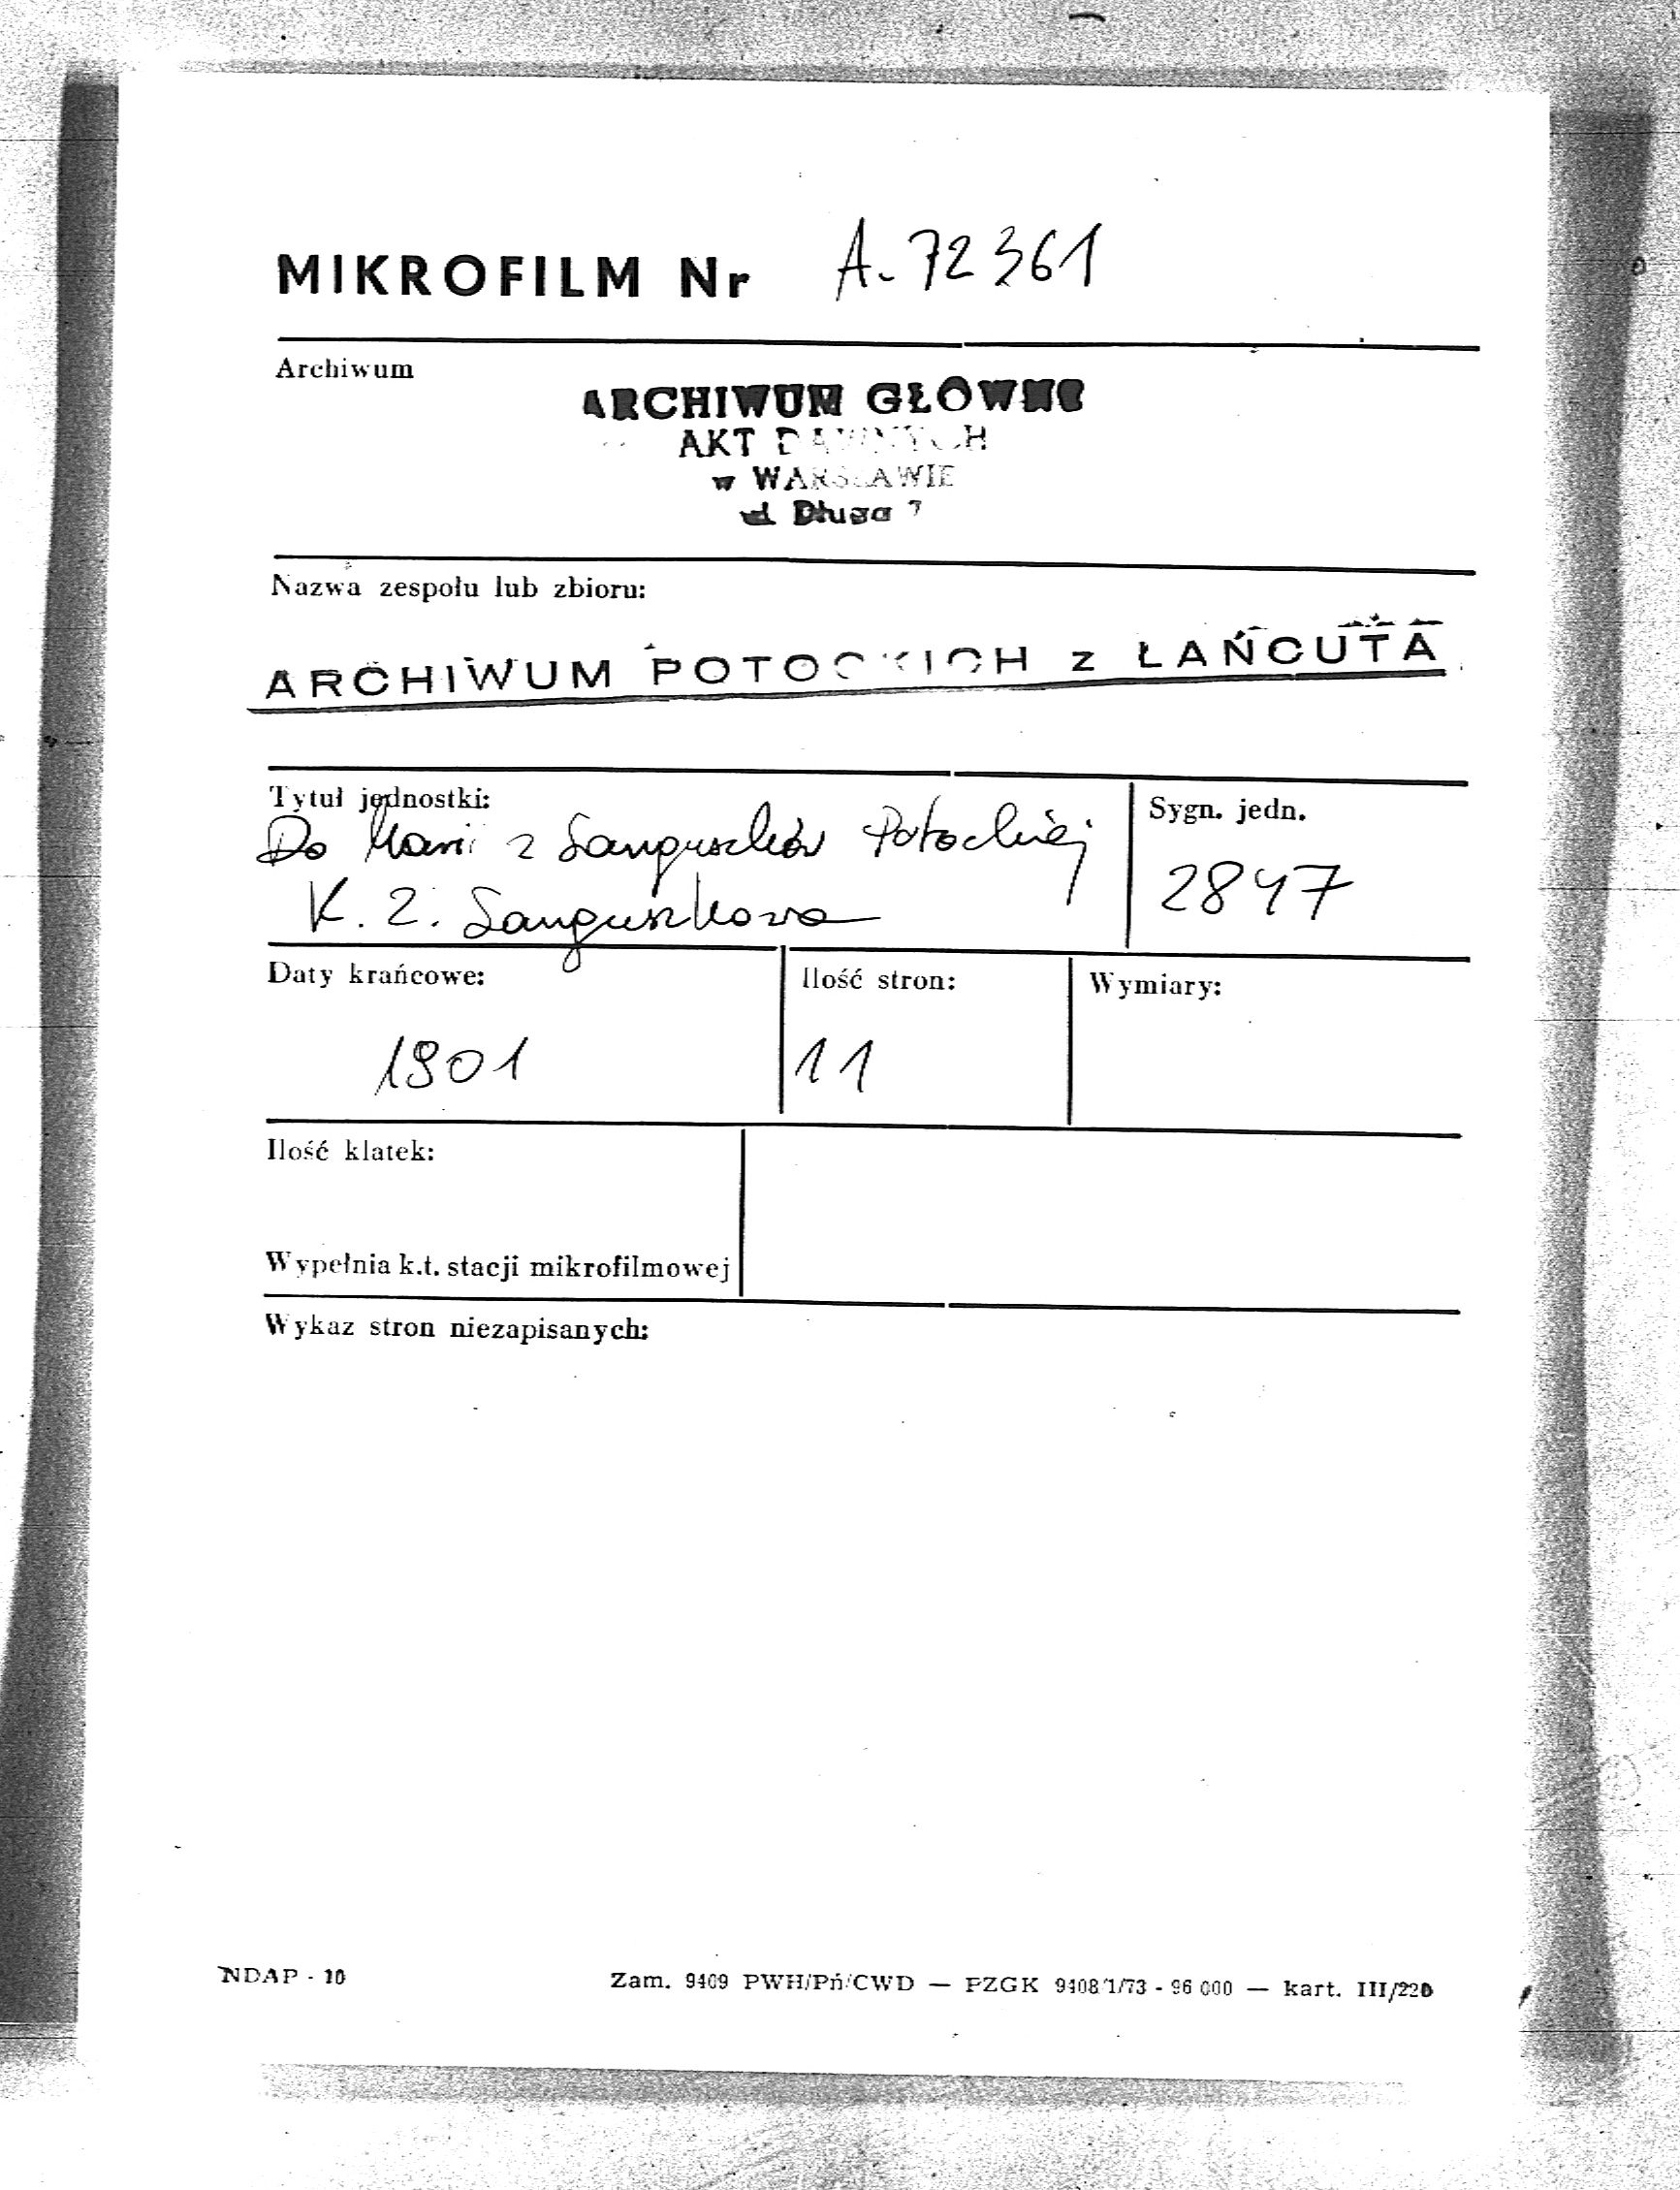 MIKROFILM Nr A. 72361
Archiwum
ARCHIWUM GŁÓWNE
AKT DAWNYCH
w WARSZAWIE
ul. Długa 7
Nazwa zespołu lub zbioru:
ARCHIWUM POTOCKICH z ŁAŃCUTA
Tytuł jednostki:
Do Marii z Sanguszków Potockiej
K. Z. Sanguszkowa
Sygn. jedn.
2847
Daty krańcowe:
1901
Ilość stron:
11
Wymiary:
Ilość klatek:
Wypełnia k.t. stacji mikrofilmowej
Wykaz stron niezapisanych:
NDAP - 10
Zam. 9409 PWH/Pń/CWD — PZGK 9408/1/73 - 96 000 — kart. III/220